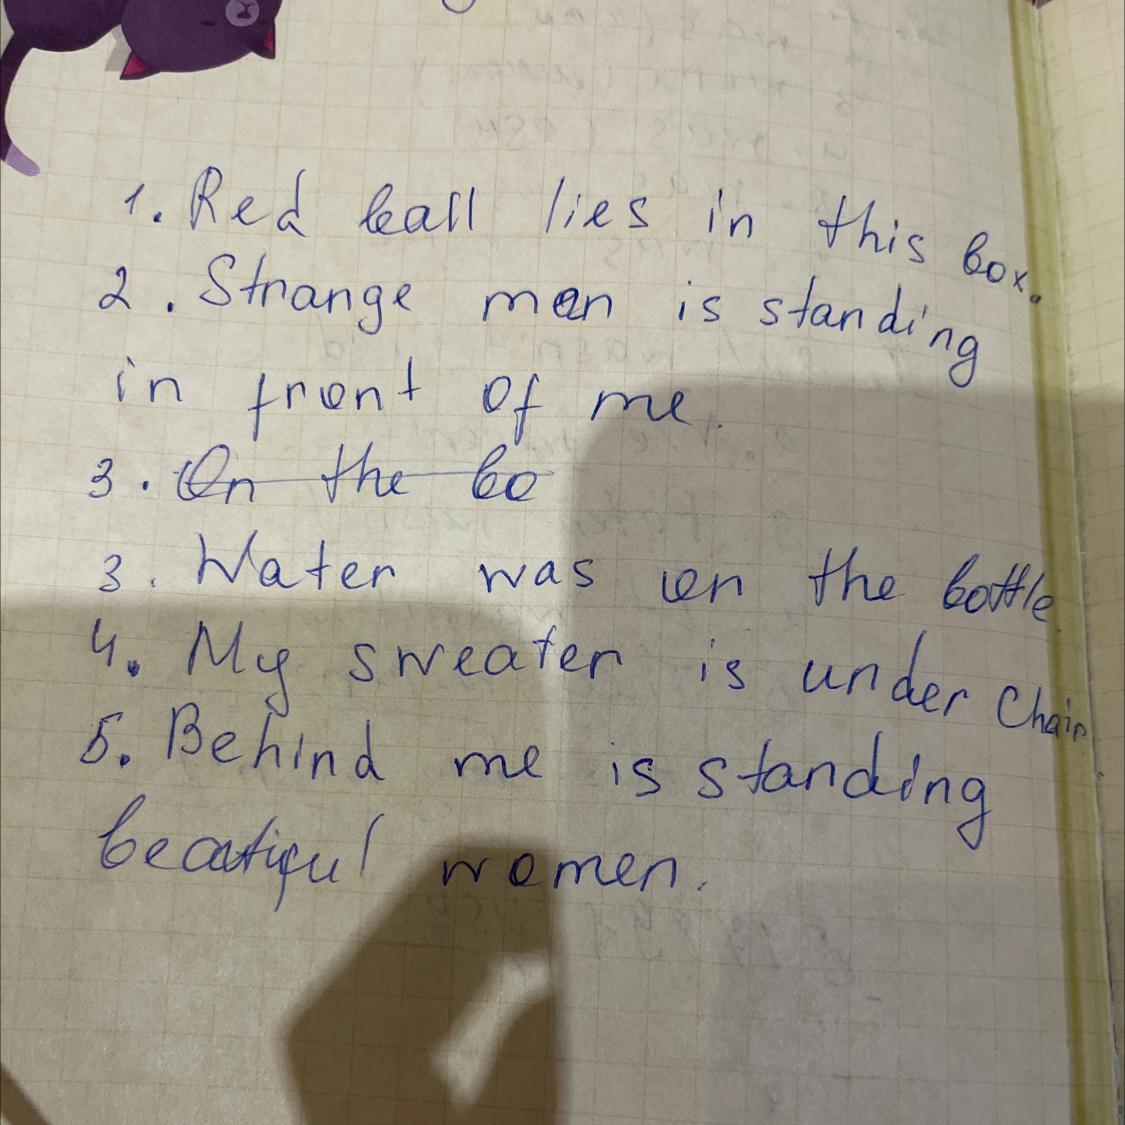 1. Red ball lies in this box.
2. Strange man is standing
in front of me.
3. On the bo
3. Water was on the bottle
4. My sweater is under Chair
5. Behind me is standing
beatiful women.